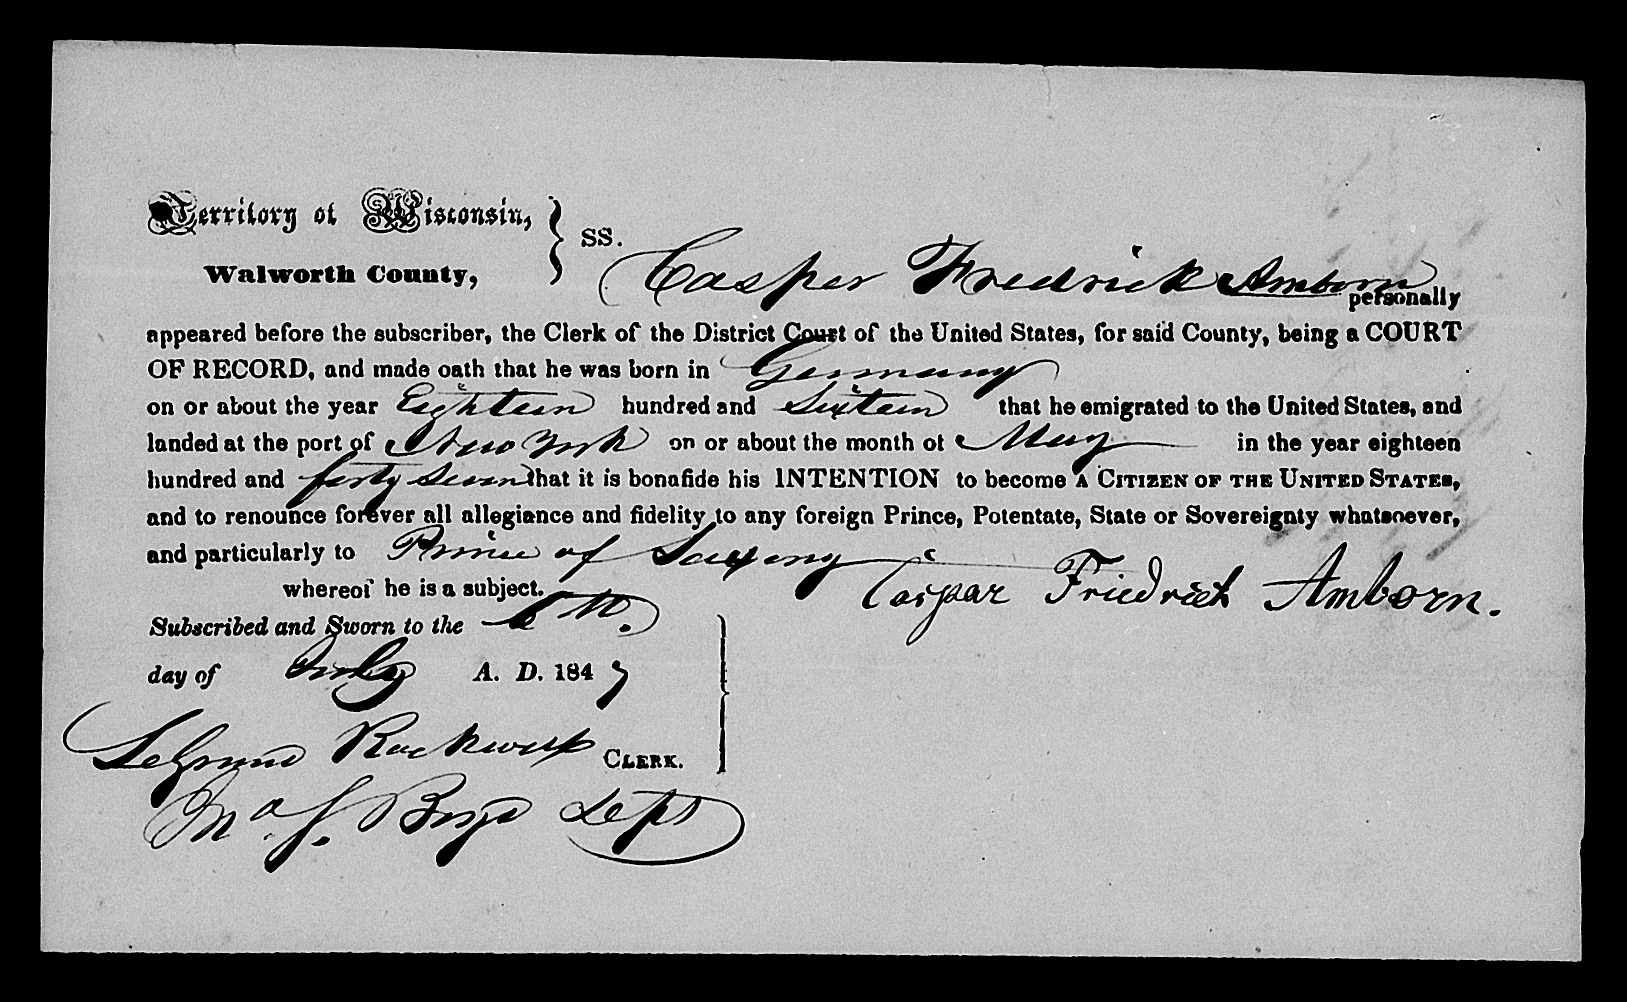 Territory of Wisconsin,
Walworth County,
SS.
Casper Fredrick Amborn personally
appeared before the subscriber, the Clerk of the District Court of the United States, for said County, being a COURT
OF RECORD, and made oath that he was born in Germany
on or about the year Eighteen hundred and Sixteen that he emigrated to the United States, and
landed at the port of New York on or about the month of May in the year eighteen
hundred and forty seven that it is bonafide his INTENTION to become A CITIZEN OF THE UNITED STATES,
and to renounce forever all allegiance and fidelity to any foreign Prince, Potentate, State or Sovereignty whatsoever,
and particularly to Prince of Saxony
whereof he is a subject.
Caspar Friedrich Amborn.
Subscribed and Sworn to the 6th.
day of July A. D. 1847
LeGrand Rockwell CLERK.
Boyd Dept